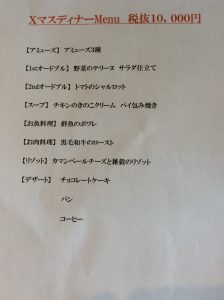 XマスディナーMenu 税抜10,000円
【アミューズ】 アミューズ3種
【1stオードブル】 野菜のテリーヌ サラダ仕立て
【2ndオードブル】 トマトのシャルロット
【スープ】 チキンのきのこクリーム パイ包み焼き
【お魚料理】 鮮魚のポワレ
【お肉料理】 黒毛和牛のロースト
【リゾット】 カマンベールチーズと雑穀のリゾット
【デザート】 チョコレートケーキ
パン
コーヒー